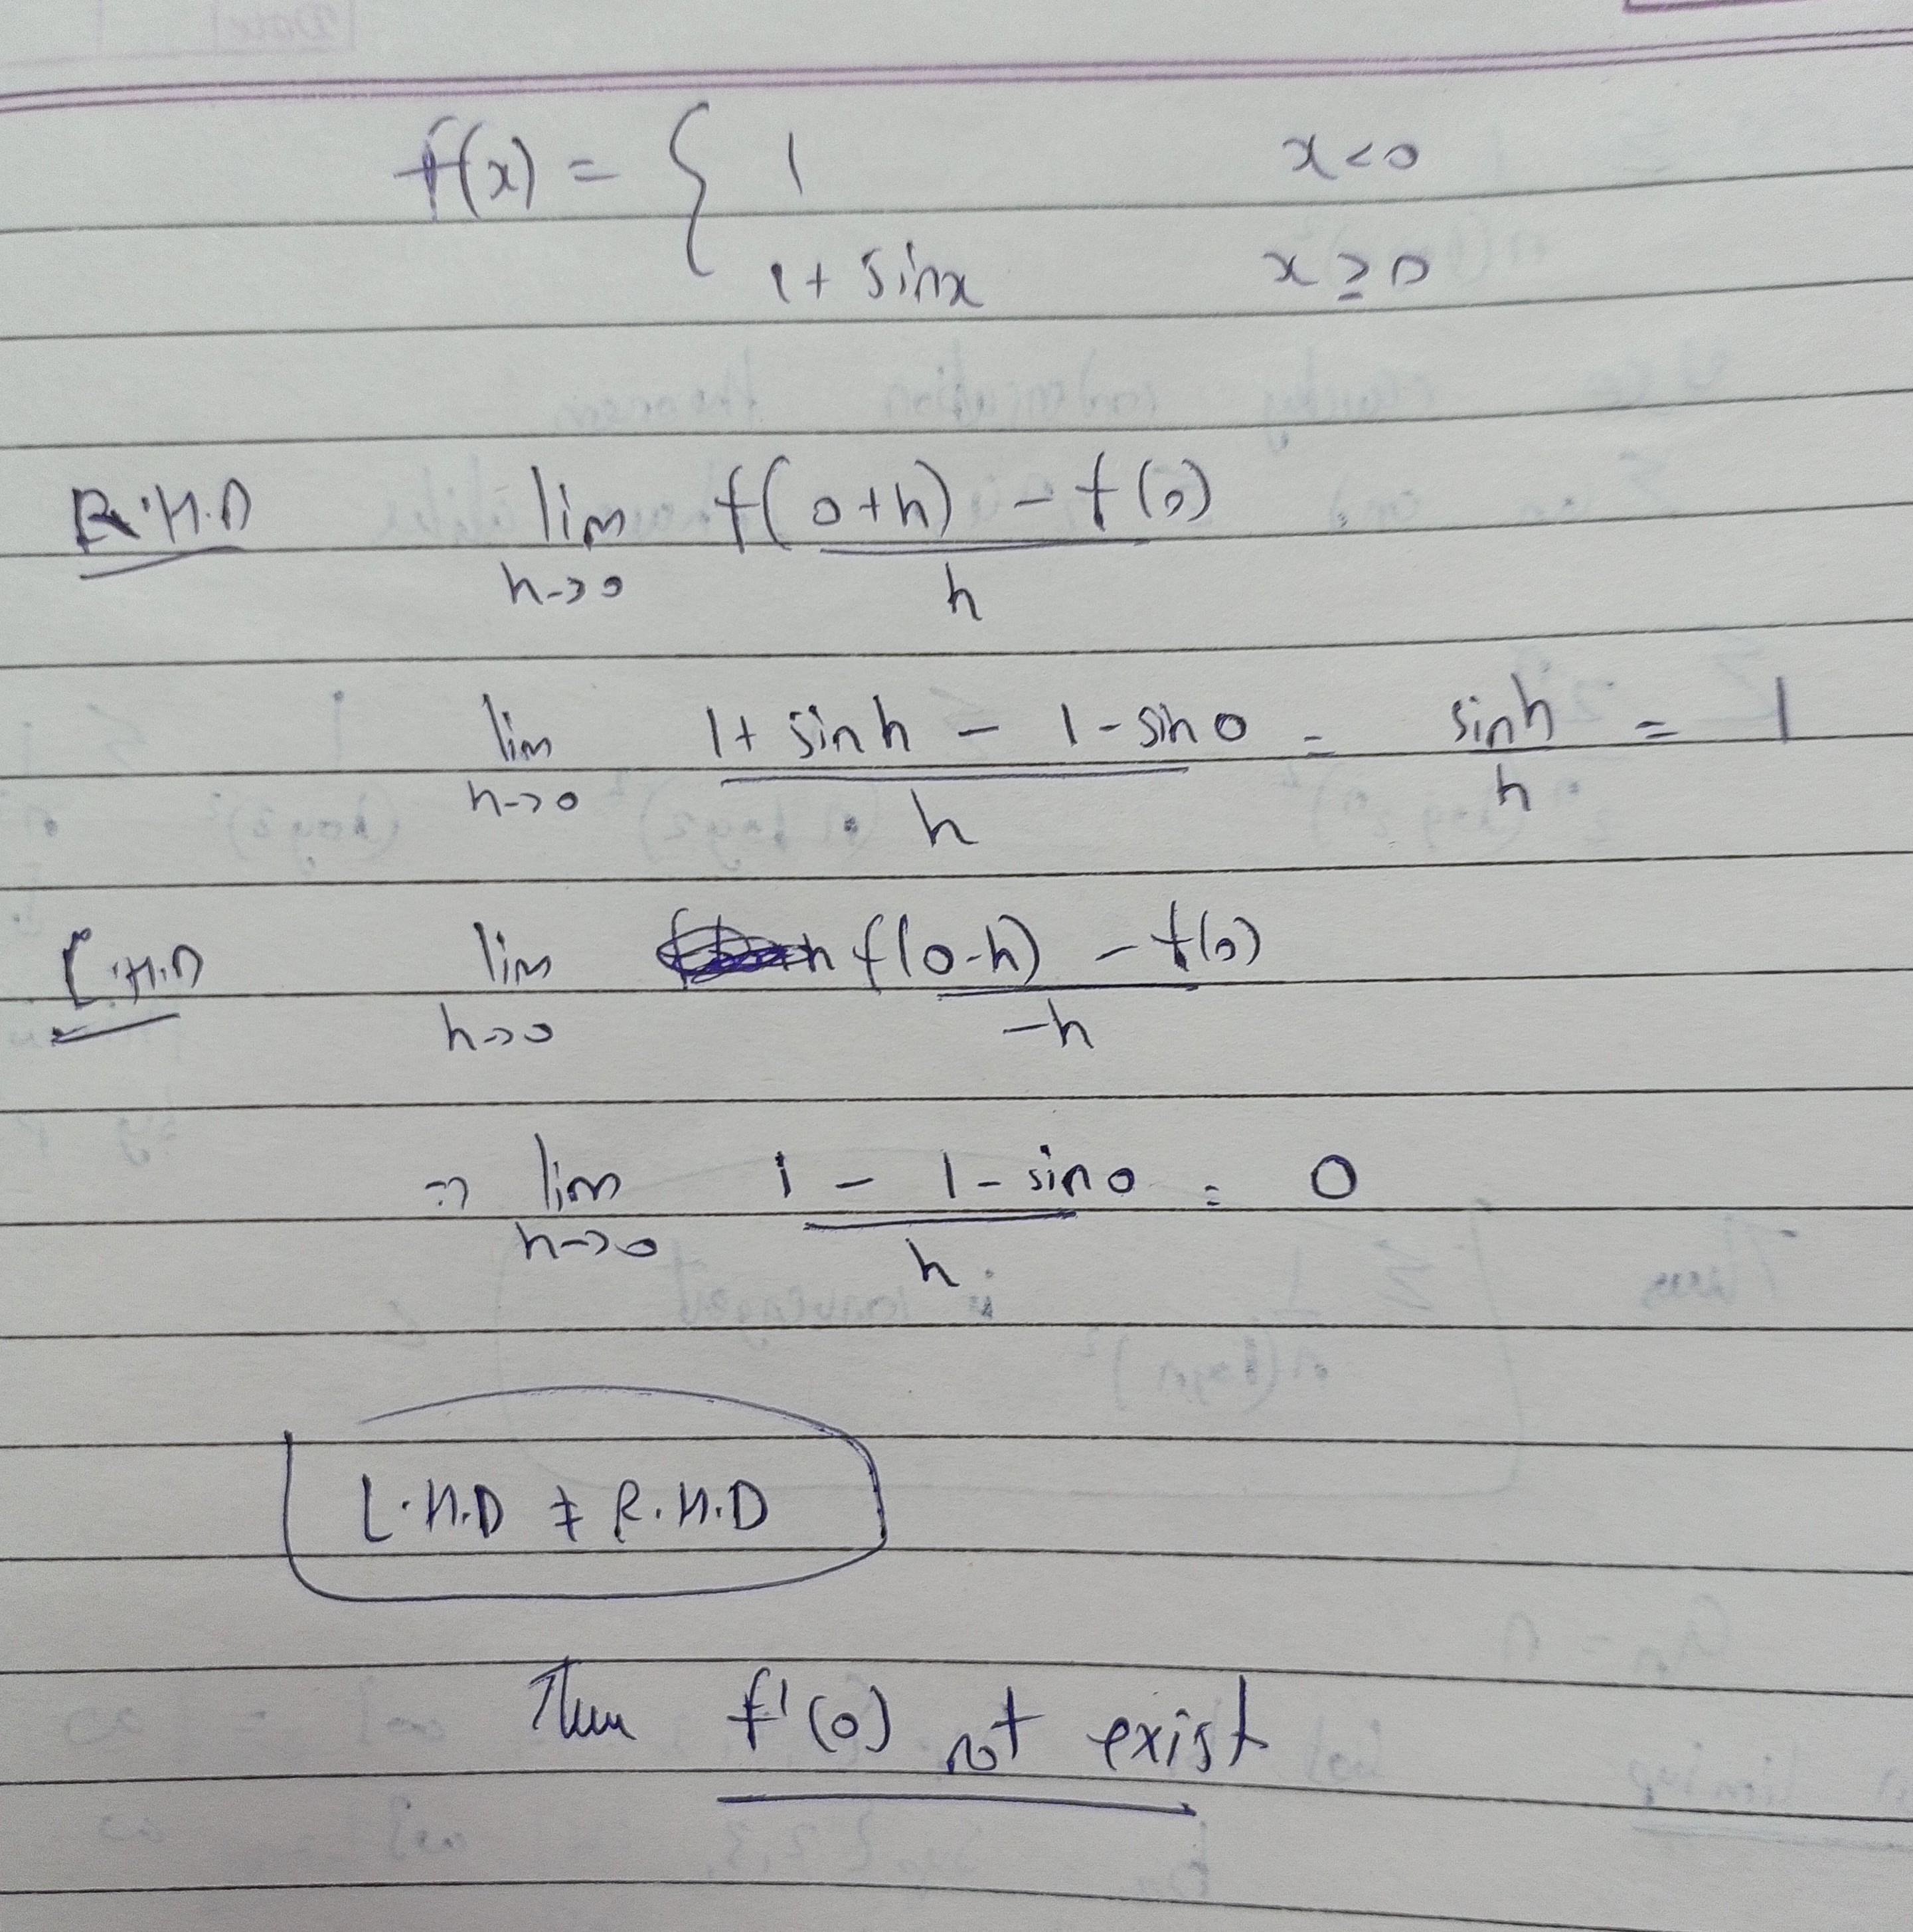 f(x) = { 1 x<0
1 + sinx x≥0
R.H.D lim h->0 f(0+h) - f(0) / h
lim h->0 1 + sinh - 1 - sin0 / h = sinh / h = 1
L.H.D lim h->0 f(0-h) - f(0) / -h
=> lim h->0 1 - 1 - sin0 / h = 0
L.H.D ≠ R.H.D
Then f'(0) not exist